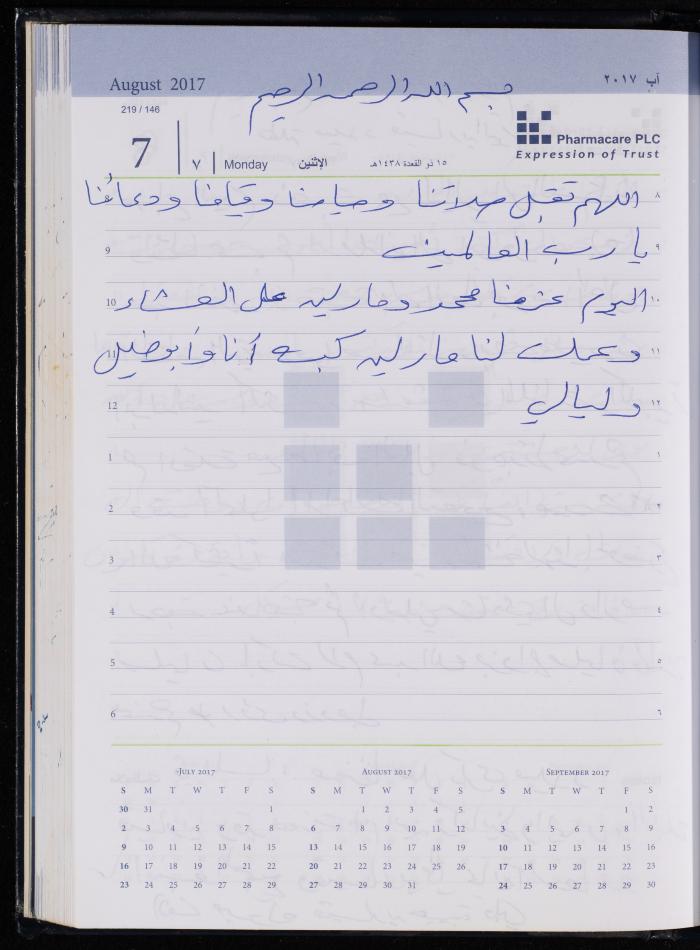 August 2017
آب ٢٠١٧
بسم الله الرحمن الرحيم
219 / 146
7 | ٧ | Monday الإثنين ١٥ ذو القعدة ١٤٣٨هـ
Pharmacare PLC
Expression of Trust
٨ اللهم تقبل صلاتنا وصيامنا وقيامنا ودعائنا
9 ٩ يا رب العالمين
10 ١٠ اليوم عزمنا محمد ومارلين على العشاء
11 ١١ وعملت لنا مارلين كبب أنا وأبو فضيل
12 ١٢ وليالي
1 ١
2 ٢
3 ٣
4 ٤
5 ٥
6 ٦
JULY 2017
S M T W T F S
30 31 1
2 3 4 5 6 7 8
9 10 11 12 13 14 15
16 17 18 19 20 21 22
23 24 25 26 27 28 29
AUGUST 2017
S M T W T F S
1 2 3 4 5
6 7 8 9 10 11 12
13 14 15 16 17 18 19
20 21 22 23 24 25 26
27 28 29 30 31
SEPTEMBER 2017
S M T W T F S
1 2
3 4 5 6 7 8 9
10 11 12 13 14 15 16
17 18 19 20 21 22 23
24 25 26 27 28 29 30